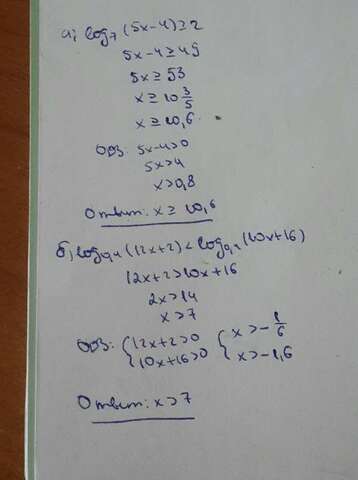 а) log₇(5x-4)≥2
5x-4≥49
5x≥53
x≥10 3/5
x≥10,6
ОДЗ: 5x-4>0
5x>4
x>0,8
Ответ: x≥10,6
б) log₀,₁(12x+2)<log₀,₁(10x+16)
12x+2>10x+16
2x>14
x>7
ОДЗ: { 12x+2>0 { x>-1/6
10x+16>0 x>-1,6
Ответ: x>7